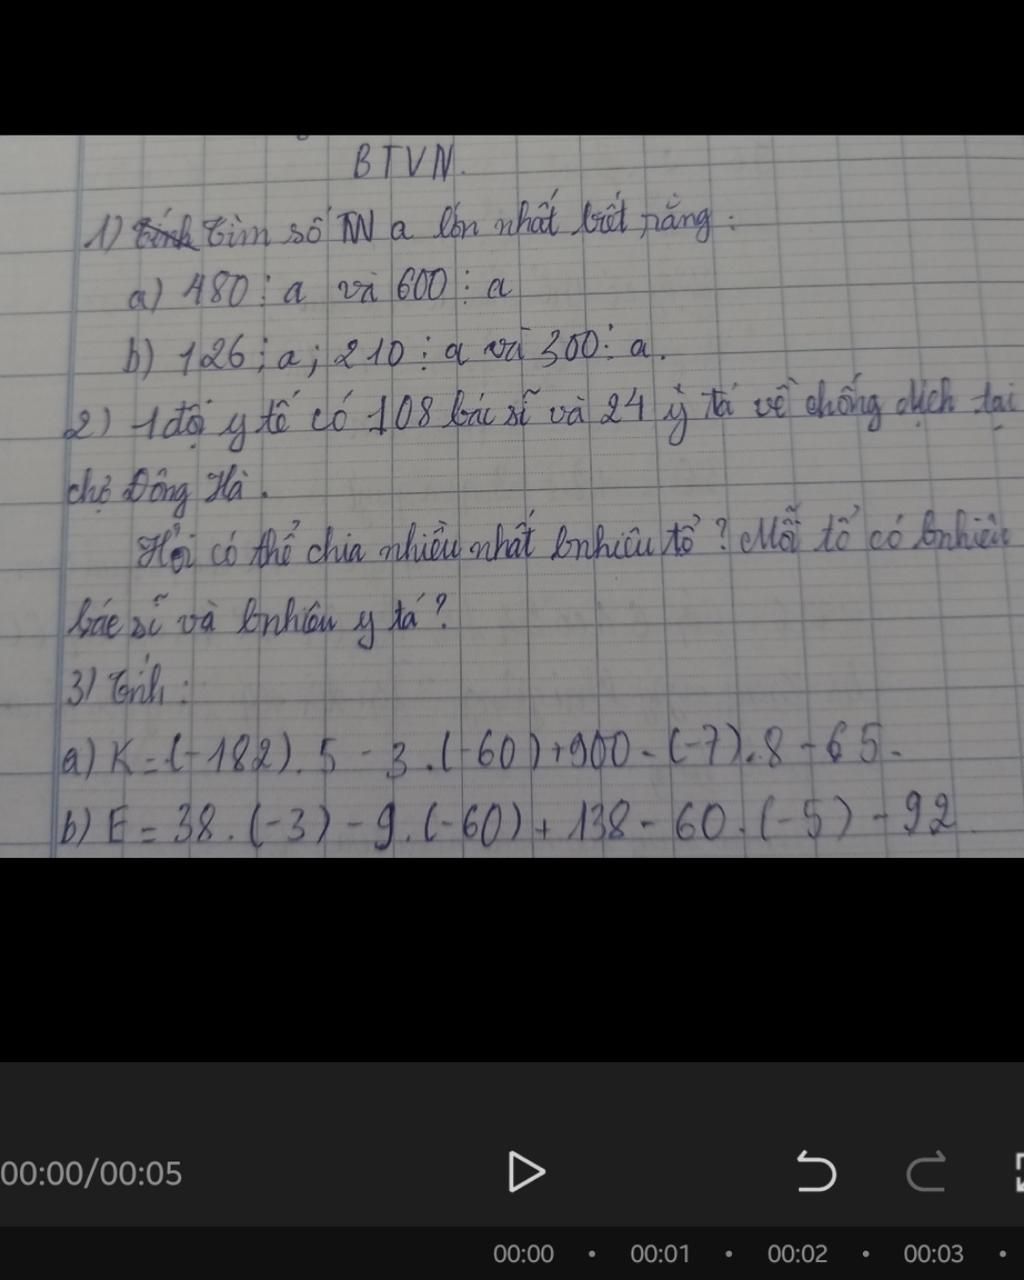 BTVN.
1) Tìm số TN a lớn nhất biết rằng:
a) 480 ⋮ a và 600 ⋮ a
b) 126 ⋮ a; 210 ⋮ a và 300 ⋮ a.
2) 1 đội y tế có 108 bác sĩ và 24 y tá về chống dịch tại
chợ Đông Hà.
Hỏi có thể chia nhiều nhất bnhiêu tổ? Mỗi tổ có bnhiêu
bác sĩ và bnhiêu y tá?
3) Tính:
a) K = (-182). 5 - 3 .(-60) + 900 - (-7). 8 - 65.
b) E = 38 . (-3) - 9. (-60) + 138 - 60 . (-5) - 92
00:00/00:05
00:00 • 00:01 • 00:02 • 00:03 •